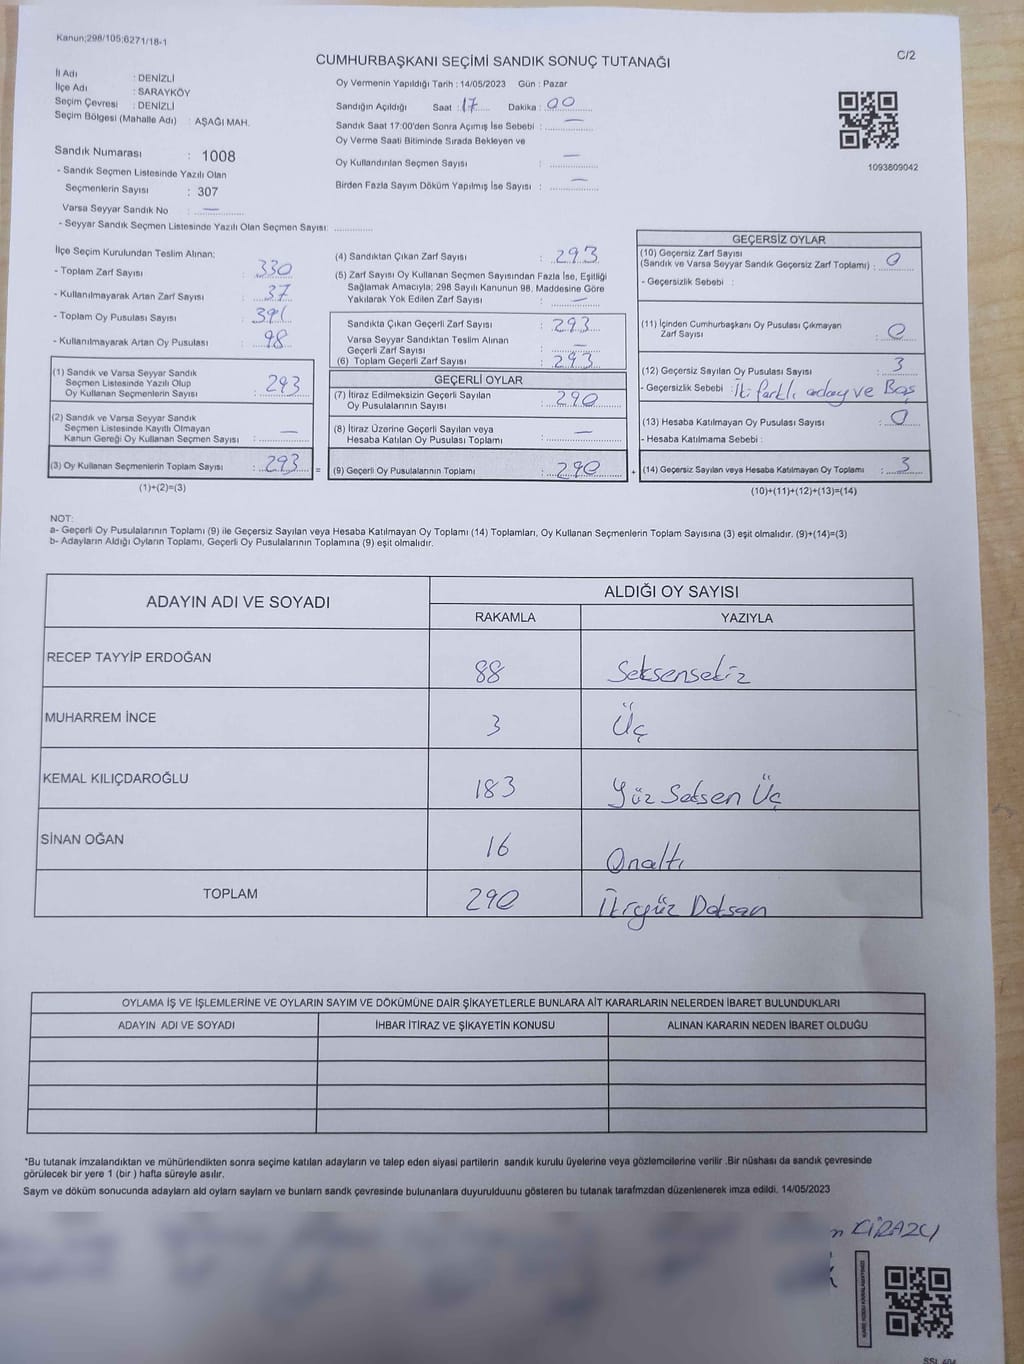 Kanun;298/105;6271/18-1
CUMHURBAŞKANI SEÇİMİ SANDIK SONUÇ TUTANAĞI
C/2
İl Adı : DENİZLİ
İlçe Adı : SARAYKÖY
Seçim Çevresi : DENİZLİ
Seçim Bölgesi (Mahalle Adı) : AŞAĞI MAH.
Sandık Numarası : 1008
- Sandık Seçmen Listesinde Yazılı Olan
Seçmenlerin Sayısı : 307
Varsa Seyyar Sandık No : —
- Seyyar Sandık Seçmen Listesinde Yazılı Olan Seçmen Sayısı: ..............
Oy Vermenin Yapıldığı Tarih : 14/05/2023 Gün : Pazar
Sandığın Açıldığı Saat : 17 Dakika : 00
Sandık Saat 17:00'den Sonra Açımış İse Sebebi : —
Oy Verme Saati Bitiminde Sırada Bekleyen ve
Oy Kullandırılan Seçmen Sayısı : —
Birden Fazla Sayım Döküm Yapılmış İse Sayısı : —
1093809042
İlçe Seçim Kurulundan Teslim Alınan;
- Toplam Zarf Sayısı : 330
- Kullanılmayarak Artan Zarf Sayısı : 37
- Toplam Oy Pusulası Sayısı : 391
- Kullanılmayarak Artan Oy Pusulası : 98
(1) Sandık ve Varsa Seyyar Sandık
Seçmen Listesinde Yazılı Olup
Oy Kullanan Seçmenlerin Sayısı : 293
(2) Sandık ve Varsa Seyyar Sandık
Seçmen Listesinde Kayıtlı Olmayan
Kanun Gereği Oy Kullanan Seçmen Sayısı : —
(3) Oy Kullanan Seçmenlerin Toplam Sayısı : 293 =
(1)+(2)=(3)
(4) Sandıktan Çıkan Zarf Sayısı : 293
(5) Zarf Sayısı Oy Kullanan Seçmen Sayısından Fazla İse, Eşitliği
Sağlamak Amacıyla; 298 Sayılı Kanunun 98. Maddesine Göre
Yakılarak Yok Edilen Zarf Sayısı : —
Sandıkta Çıkan Geçerli Zarf Sayısı : 293
Varsa Seyyar Sandıktan Teslim Alınan
Geçerli Zarf Sayısı : —
(6) Toplam Geçerli Zarf Sayısı : 293
GEÇERLİ OYLAR
(7) İtiraz Edilmeksizin Geçerli Sayılan
Oy Pusulalarının Sayısı : 290
(8) İtiraz Üzerine Geçerli Sayılan veya
Hesaba Katılan Oy Pusulası Toplamı : —
(9) Geçerli Oy Pusulalarının Toplamı : 290 +
GEÇERSİZ OYLAR
(10) Geçersiz Zarf Sayısı
(Sandık ve Varsa Seyyar Sandık Geçersiz Zarf Toplamı) : 0
- Geçersizlik Sebebi :
(11) İçinden Cumhurbaşkanı Oy Pusulası Çıkmayan
Zarf Sayısı : 0
(12) Geçersiz Sayılan Oy Pusulası Sayısı : 3
- Geçersizlik Sebebi : İki farklı aday ve Boş
(13) Hesaba Katılmayan Oy Pusulası Sayısı : 0
- Hesaba Katılmama Sebebi :
(14) Geçersiz Sayılan veya Hesaba Katılmayan Oy Toplamı : 3
(10)+(11)+(12)+(13)=(14)
NOT:
a- Geçerli Oy Pusulalarının Toplamı (9) ile Geçersiz Sayılan veya Hesaba Katılmayan Oy Toplamı (14) Toplamları, Oy Kullanan Seçmenlerin Toplam Sayısına (3) eşit olmalıdır. (9)+(14)=(3)
b- Adayların Aldığı Oyların Toplamı, Geçerli Oy Pusulalarının Toplamına (9) eşit olmalıdır.
ADAYIN ADI VE SOYADI ALDIĞI OY SAYISI
RAKAMLA YAZIYLA
RECEP TAYYİP ERDOĞAN 88 Seksensekiz
MUHARREM İNCE 3 Üç
KEMAL KILIÇDAROĞLU 183 Yüz Seksen Üç
SİNAN OĞAN 16 Onaltı
TOPLAM 290 İkiyüz Doksan
OYLAMA İŞ VE İŞLEMLERİNE VE OYLARIN SAYIM VE DÖKÜMÜNE DAİR ŞİKAYETLERLE BUNLARA AİT KARARLARIN NELERDEN İBARET BULUNDUKLARI
ADAYIN ADI VE SOYADI İHBAR İTİRAZ VE ŞİKAYETİN KONUSU ALINAN KARARIN NEDEN İBARET OLDUĞU
*Bu tutanak imzalandıktan ve mühürlendikten sonra seçime katılan adayların ve talep eden siyasi partilerin sandık kurulu üyelerine veya gözlemcilerine verilir .Bir nüshası da sandık çevresinde
görülecek bir yere 1 (bir ) hafta süreyle asılır.
Sayım ve döküm sonucunda adayların ald oyların sayların ve bunların sandk çevresinde bulunanlara duyurulduunu gösteren bu tutanak tarafmzdan düzenlenerek imza edildi. 14/05/2023
KİRAZCI